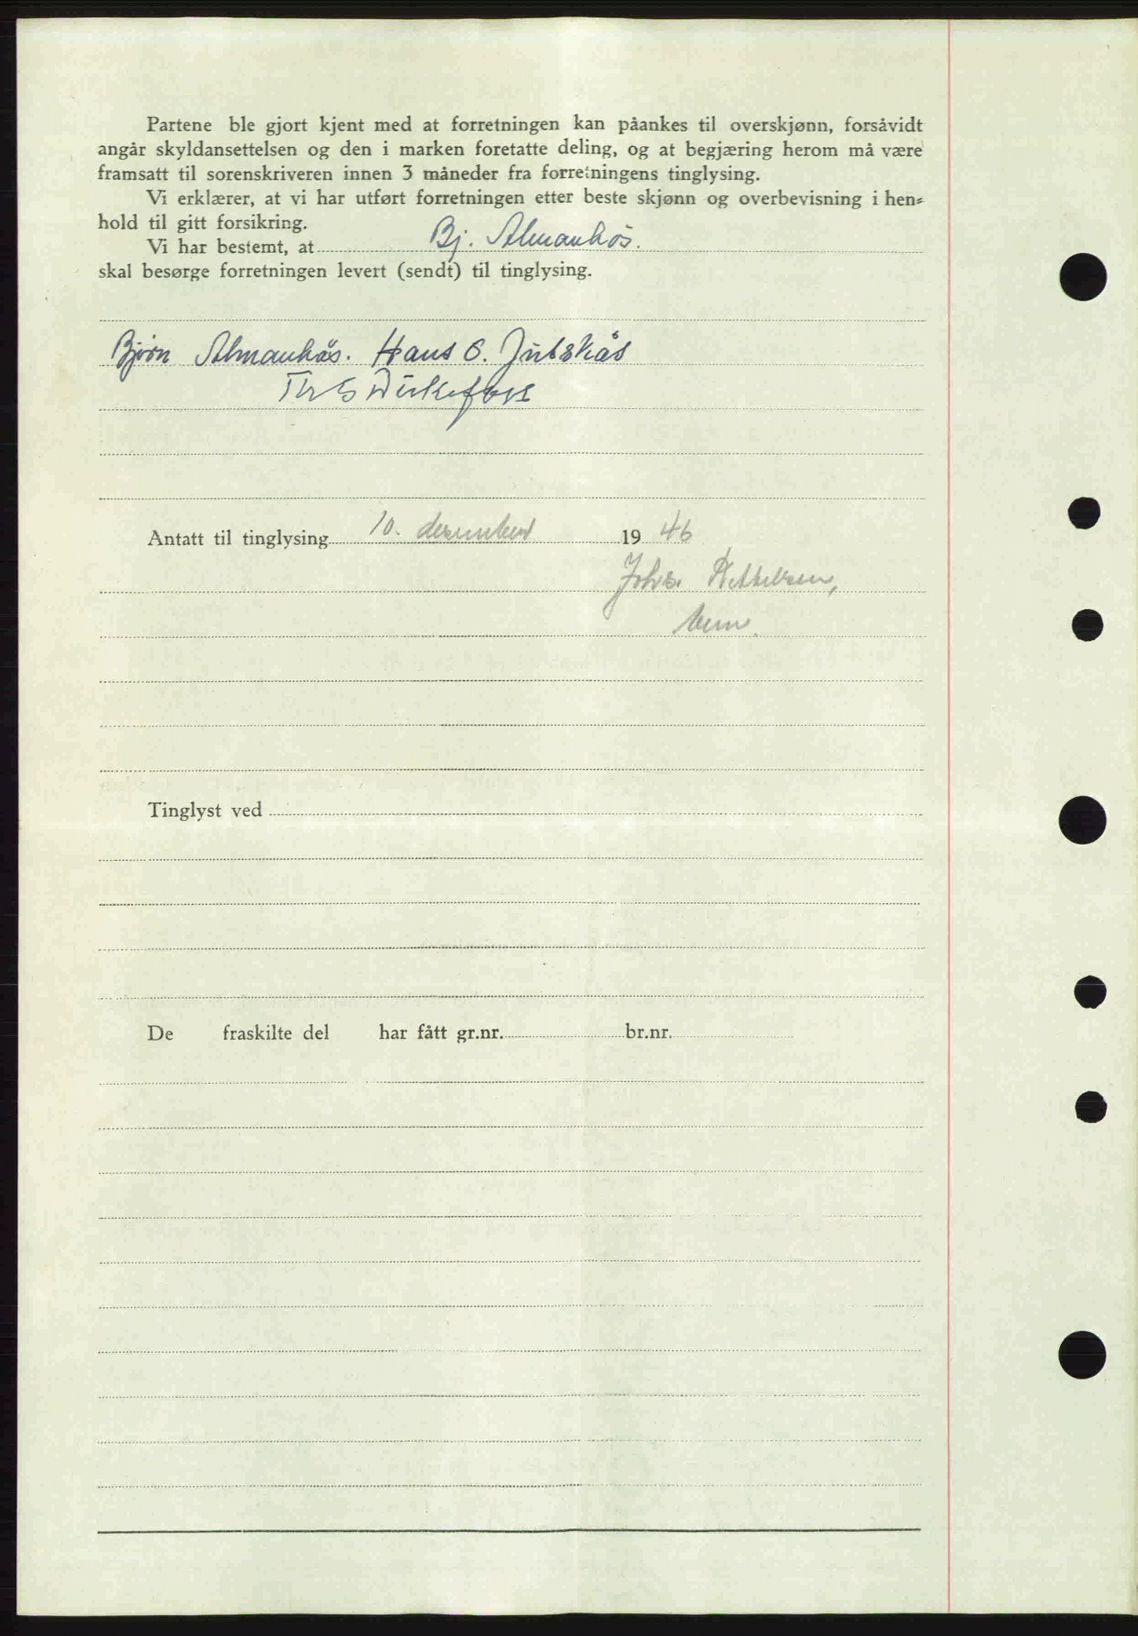 Partene ble gjort kjent med at forretningen kan påankes til overskjønn, forsåvidt
angår skyldansettelsen og den i marken foretatte deling, og at begjæring herom må være
framsatt til sorenskriveren innen 3 måneder fra forretningens tinglysing.
Vi erklærer, at vi har utført forretningen etter beste skjønn og overbevisning i hen-
hold til gitt forsikring.
Vi har bestemt, at Bj. Almankås.
skal besørge forretningen levert (sendt) til tinglysing.
Bjørn Almankås. Hans O. Jutskås
Antatt til tinglysing 10. desember 1946
Johs.
Tinglyst ved
De fraskilte del har fått gr.nr. br.nr.